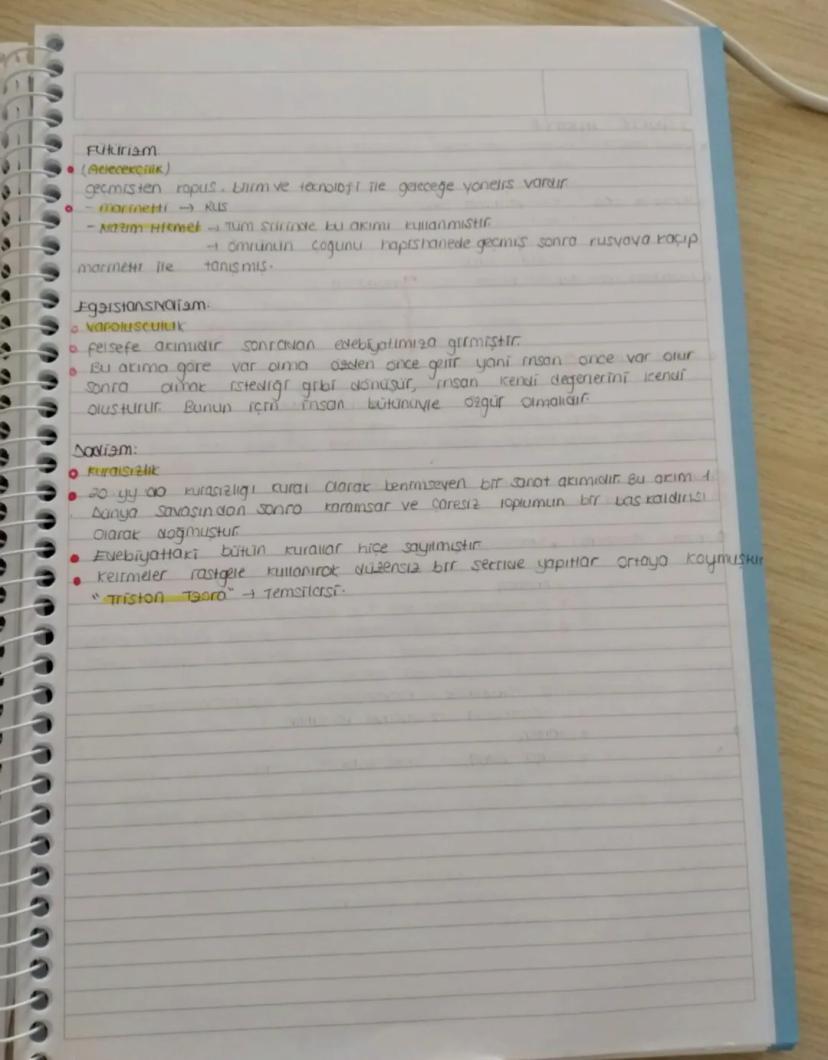 Futurizm
(Gelecekçilik)
geçmişten kopuş. bilim ve teknoloji ile geleceğe yöneliş vardır
- marinetti → Rus
- Nazım Hikmet → Tüm şiirinde bu akımı kullanmıştır.
→ ömrünün çoğunu hapishanede geçmiş sonra rusyaya kaçıp
marinetti ile tanışmış.
Egzistansiyalizm.
varoluşculuk
felsefe akımıdır sonradan edebiyatımıza girmiştir.
Bu akıma göre var olma özden önce gelir yani insan önce var olur
sonra olmak istediği gibi dönüşür, insan kendi değenerini kendi
oluşturur. Bunun için insan bütünüyle özgür olmalıdır.
Dadizm:
kuralsızlık
20 yy da kurasızlığı kural olarak benimseyen bir sanat akımıdır. Bu akım 1
Dünya savaşından sonra karamsar ve çaresiz toplumun bir başkaldırısı
olarak doğmuştur.
Edebiyattaki bütün kurallar hiçe sayılmıştır.
kelimeler rastgele kullanırak düzensiz bir şekilde yapıtlar ortaya koymuştur
"Triston Tzara" → Temsilcisi.